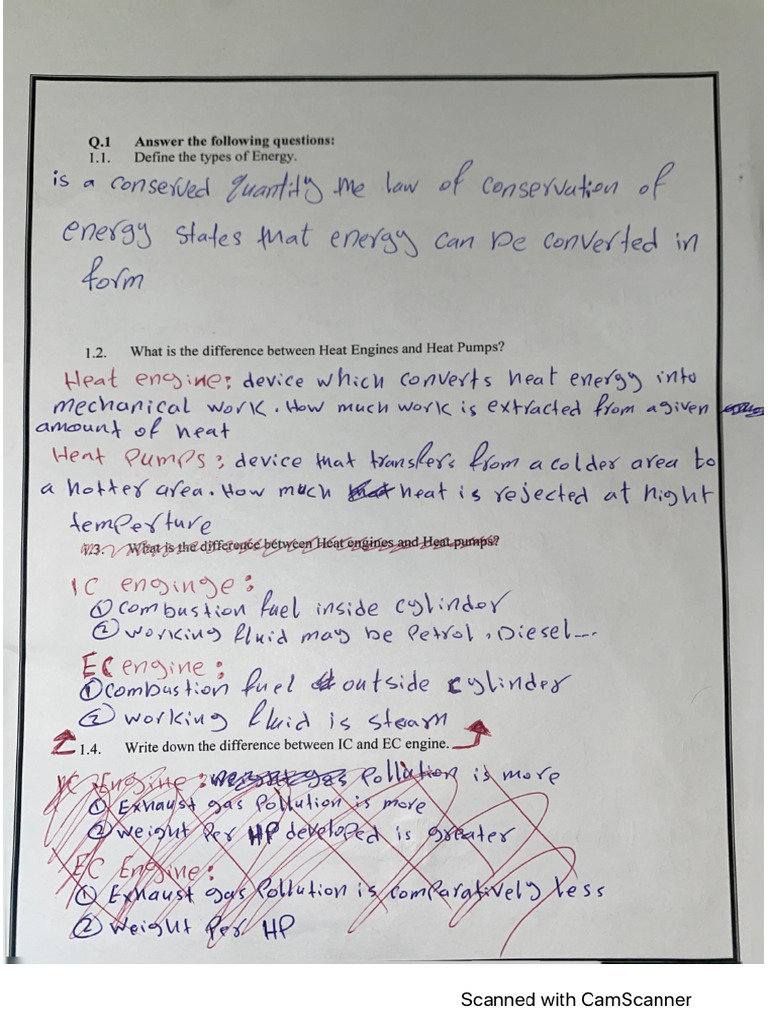 Q.1 Answer the following questions:
1.1. Define the types of Energy.
is a conserved quantity the law of conservation of
energy states that energy can be converted in
form
1.2. What is the difference between Heat Engines and Heat Pumps?
Heat engine: device which converts heat energy into
mechanical work. How much work is extracted from a given
amount of heat
Heat Pumps: device that transfers from a colder area to
a hotter area. How much heat is rejected at hight
temperture
1.3. What is the difference between Heat engines and Heat pumps?
IC enginge:
① combustion fuel inside cylinder
② working fluid may be Petrol, Diesel---
EC engine:
① combustion fuel outside cylinder
② working fluid is steam
1.4. Write down the difference between IC and EC engine.
IC Engine: Pollution is more
① Exhaust gas Pollution is more
② weight Per HP developed is greater
EC Engine:
① Exhaust gas Pollution is comparatively less
② Weight Per HP
Scanned with CamScanner